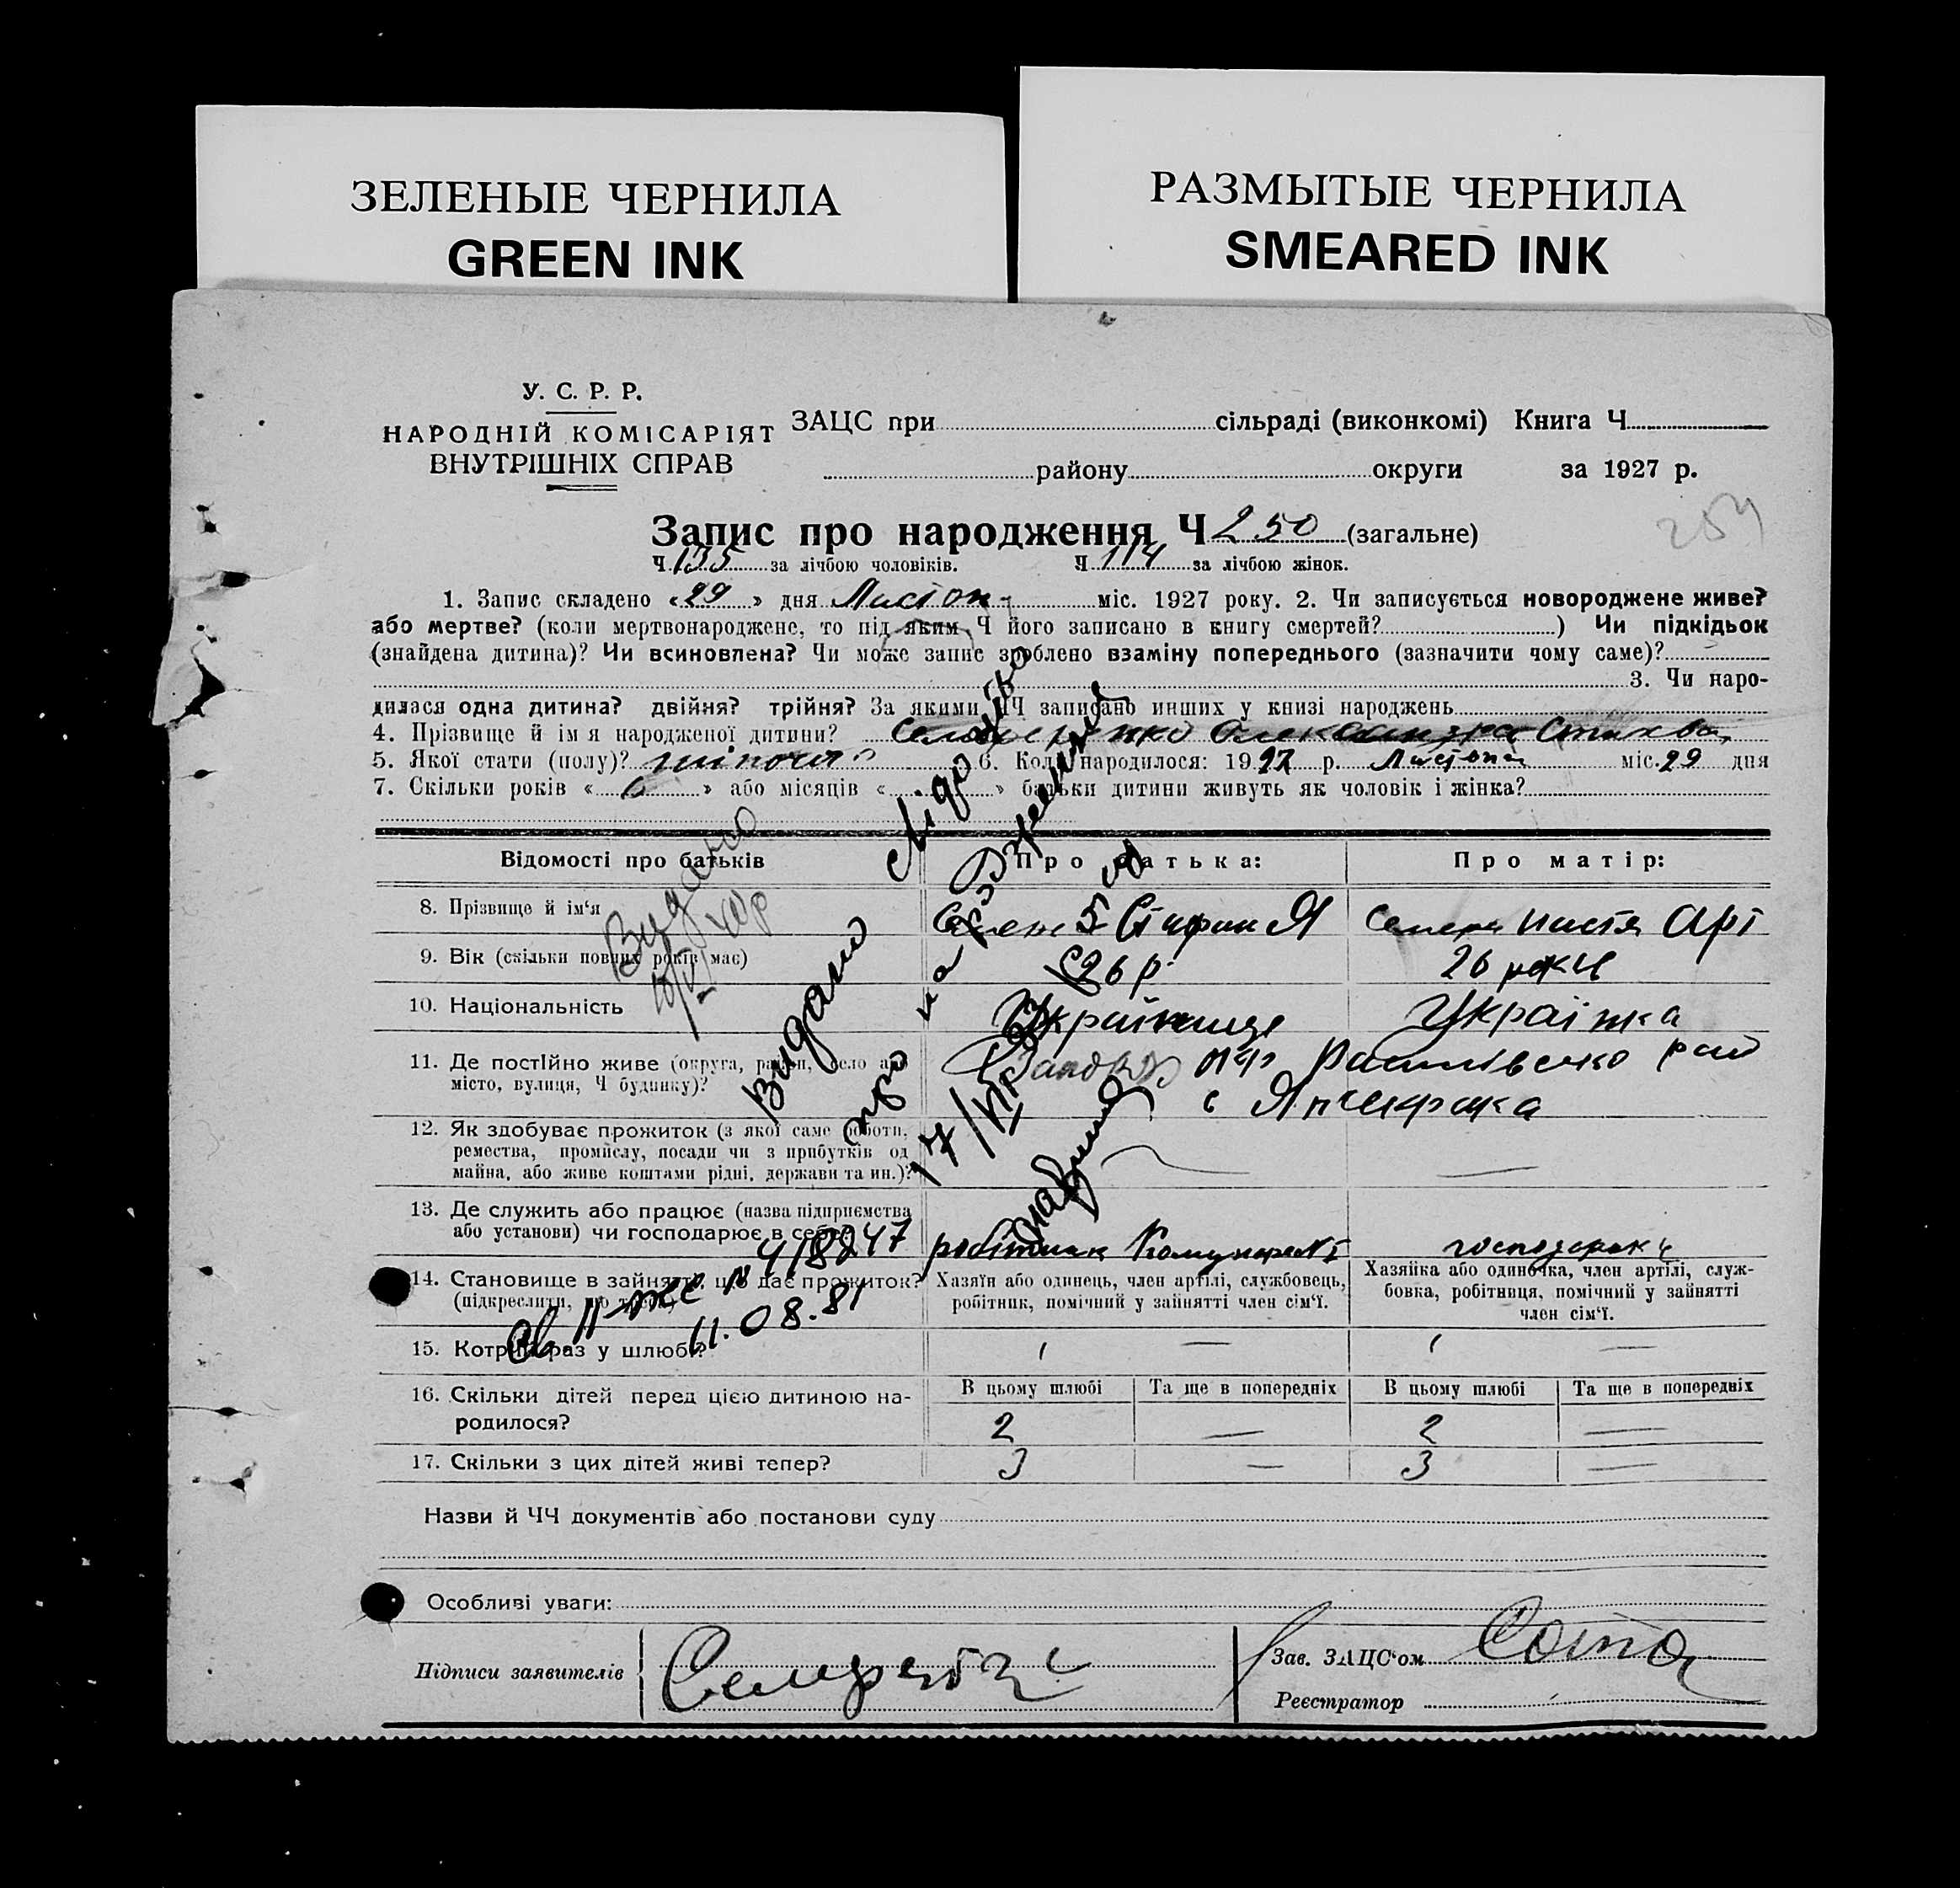 ЗЕЛЕНЫЕ ЧЕРНИЛА
GREEN INK
РАЗМЫТЫЕ ЧЕРНИЛА
SMEARED INK
У. С. Р. Р.
НАРОДНІЙ КОМІСАРІЯТ
ВНУТРІШНІХ СПРАВ
ЗАЦС при сільраді (виконкомі) Книга Ч.
району округи за 1927 р.
Запис про народження Ч 250 (загальне)
254
Ч 135 за лічбою чоловіків. Ч 114 за лічбою жінок.
1. Запис складено «29» дня Листоп міс. 1927 року. 2. Чи записується новороджене живе?
або мертве? (коли мертвонароджене, то під яким Ч його записано в книгу смертей?) Чи підкідьок
(знайдена дитина)? Чи всиновлена? Чи може запис зроблено взаміну попереднього (зазначити чому саме)?
3. Чи наро-
дилася одна дитина? двійня? трійня? За якими ЧЧ записано инших у книзі народжень
4. Прізвище й ім я народженої дитини? Олександра
5. Якої стати (полу)? 6. Коли народилося: 1927 р. Листопа міс. 29 дня
7. Скільки років «6» або місяців « » батьки дитини живуть як чоловік і жінка?
Відомості про батьків Про батька: Про матір:
8. Прізвище й ім'я Настя Арт
9. Вік (скільки повних років має) 26 р. 26 роки
10. Національність Українець Українка
11. Де постійно живе (округа, район, село або
місто, вулиця, Ч будинку)? рай
с
12. Як здобуває прожиток (з якої саме роботи,
ремества, промислу, посади чи з прибутків од
майна, або живе коштами рідні, держави та ин.)?
13. Де служить або працює (назва підприємства
або установи) чи господарює в себе? робітник
14. Становище в зайнятті, що дає прожиток?
(підкреслити, що треба)
Хазяїн або одинець, член артілі, службовець,
робітник, помічний у зайнятті член сім'ї.
Хазяйка або одиночка, член артілі, служ-
бовка, робітниця, помічний у зайнятті
член сім'ї.
15. Котрий раз у шлюбі? 1 — 1 —
16. Скільки дітей перед цією дитиною на-
родилося?
В цьому шлюбі Та ще в попередніх В цьому шлюбі Та ще в попередніх
2 — 2 —
17. Скільки з цих дітей живі тепер? 3 — 3 —
Назви й ЧЧ документів або постанови суду
Особливі уваги:
Підписи заявителів
Зав. ЗАЦС'ом
Реєстратор
Видано
Видано
про
11.08.81